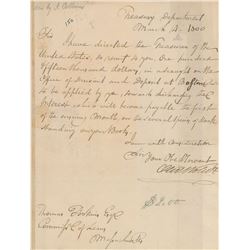 Treasury Department
March 4. 1800
Sir
I have directed the Treasurer of the
United States, to remit to you One hundred
fifteen thousand dollars, in a draught on the
Office of Discount and Deposit at Boston
to be applied by you, towards discharging the
Interest which will become payable the first
of the ensuing Month on the several species of Stock
standing on your Books.
I am with consideration
Sir
Your Obedt Servant
Oliv Wolcott
$2.00
Thomas Perkins Esqr
Commr of Loans
Massachusetts